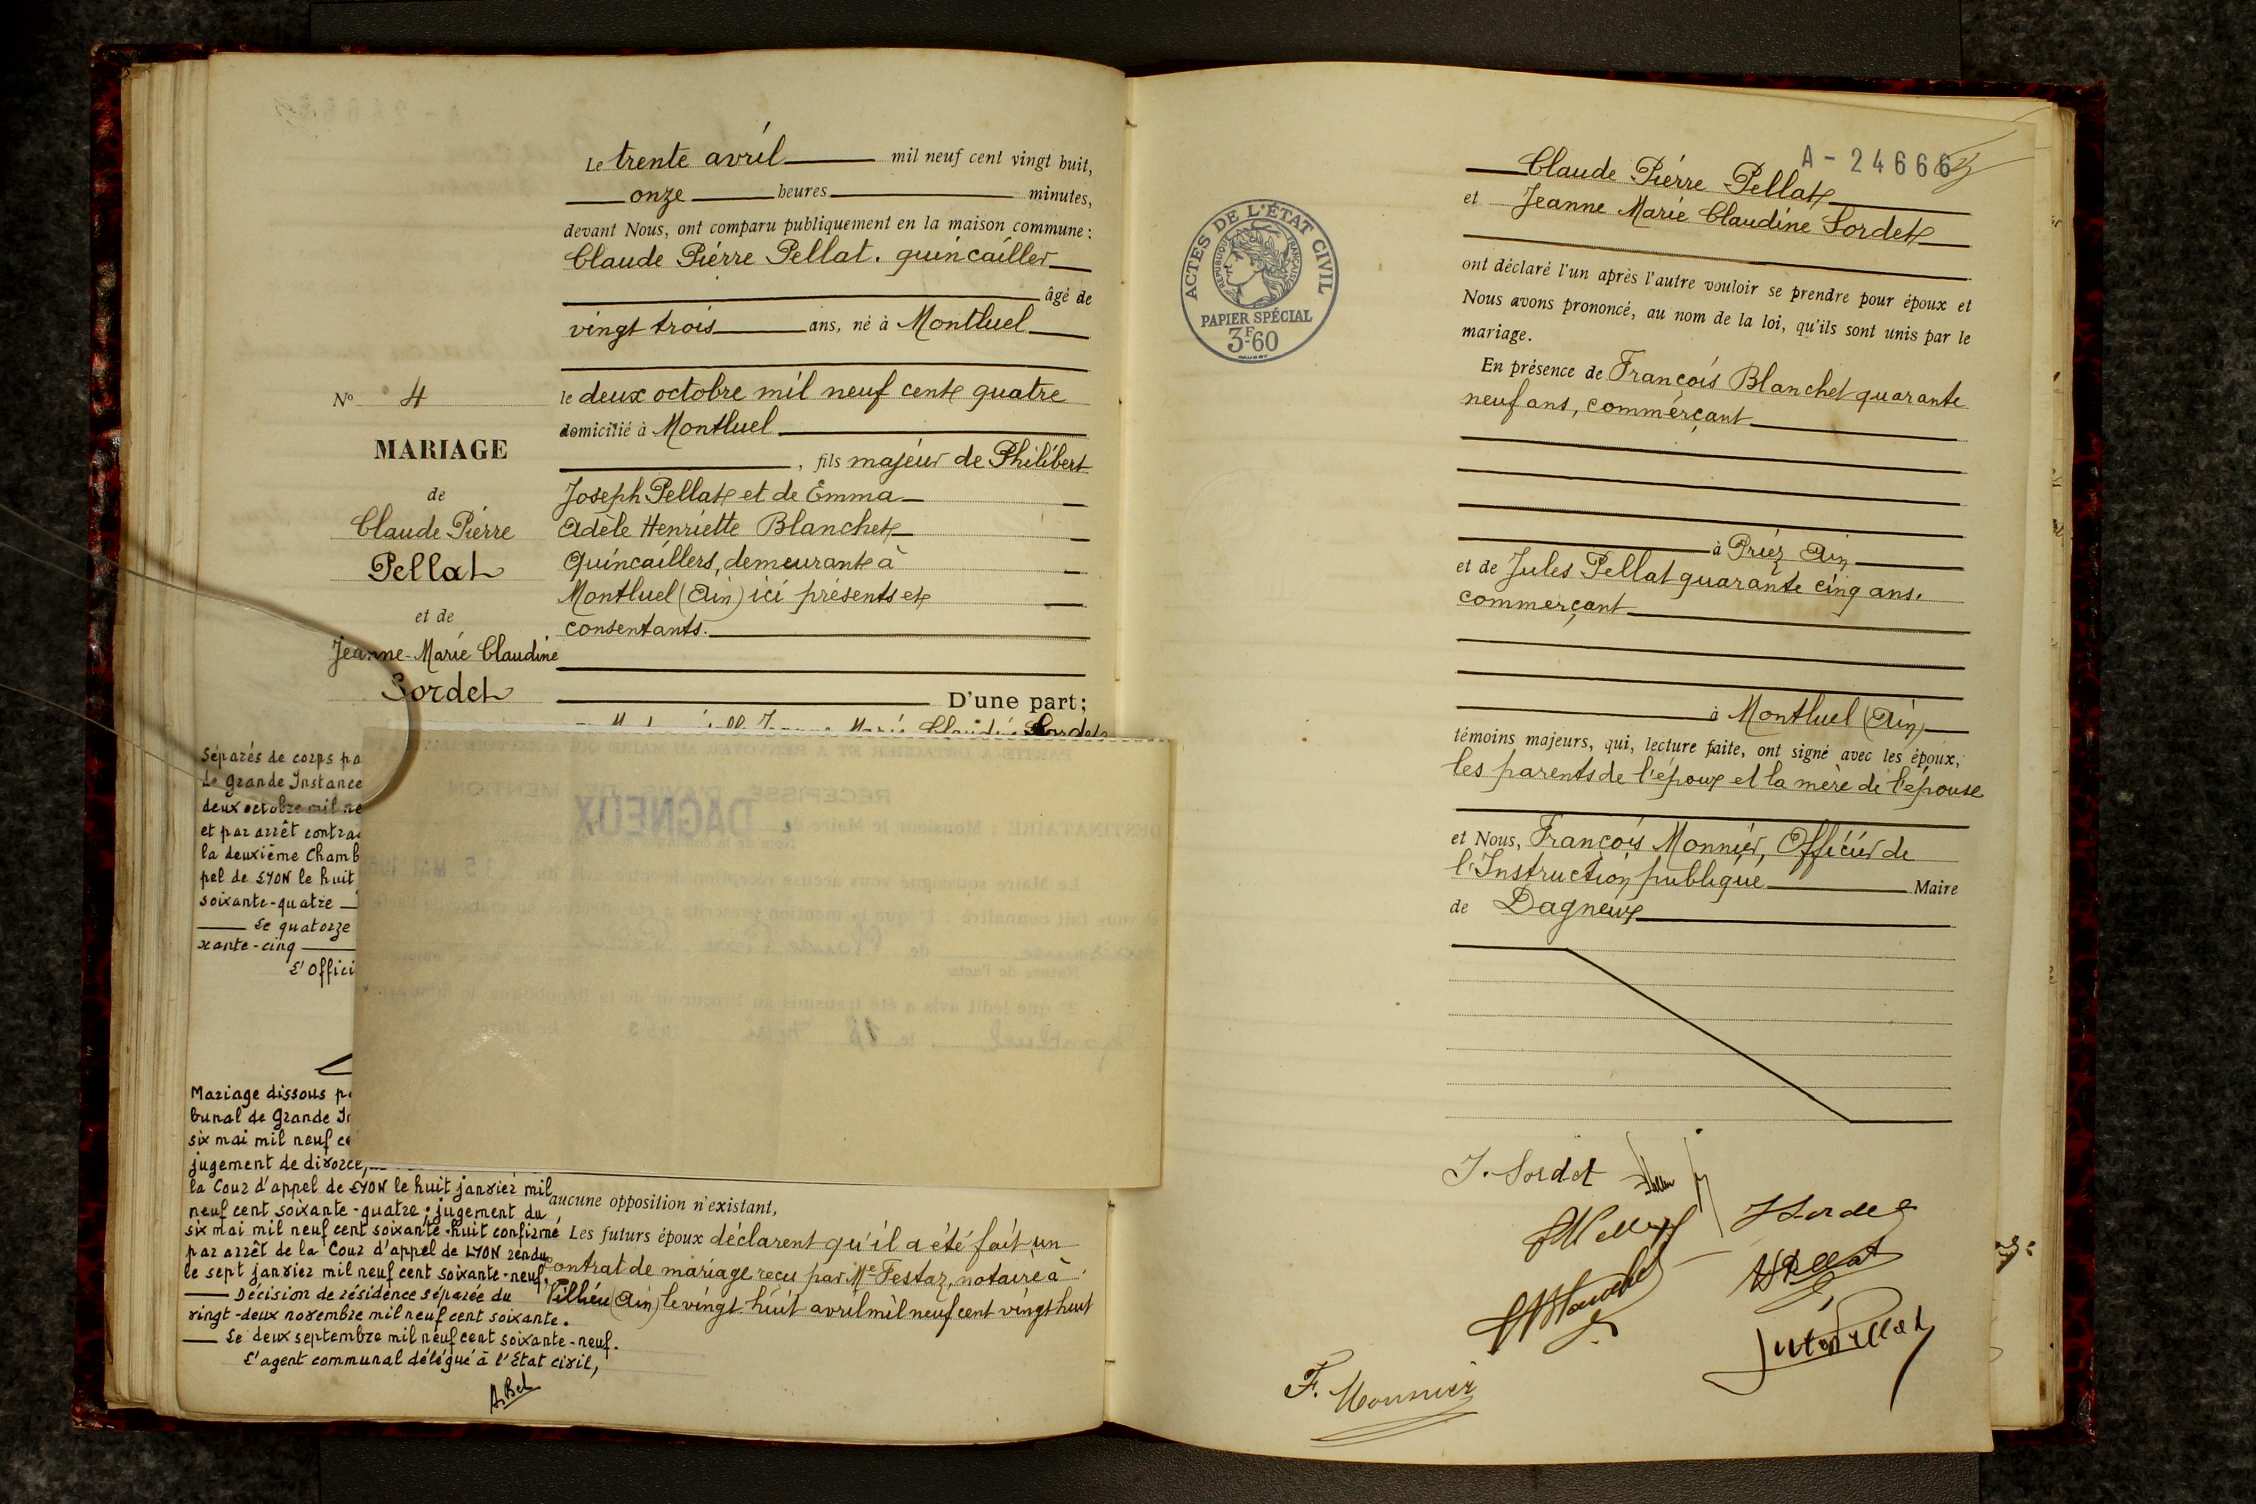 Le trente avril mil neuf cent vingt huit,
onze heures minutes,
devant Nous, ont comparu publiquement en la maison commune :
Claude Pierre Pellat. quincailler
âgé de
vingt trois ans, né à Montluel
le deux octobre mil neuf cent quatre
domicilié à Montluel
, fils majeur de Philibert
Joseph Pellat et de Emma
Adèle Henriette Blanchet
Quincaillers, demeurant à
Montluel (Ain) ici présents et
consentants.
D'une part;
Jeanne Marie Claudine Sordet
No 4
MARIAGE
de
Claude Pierre
Pellat
et de
Jeanne-Marie Claudine
Sordet
Séparés de corps pa
de Grande Instance
deux octobre mil ne
et par arrêt contra
la deuxième Chamb
pel de LYON le huit
soixante-quatre
Le quatorze
xante-cinq
L'Offici
Mariage dissous p
bunal de Grande In
six mai mil neuf ce
jugement de divorce,
la Cour d'appel de LYON le huit janvier mil
neuf cent soixante-quatre ; jugement du
six mai mil neuf cent soixante-huit confirmé
par arrêt de la Cour d'appel de LYON rendu
le sept janvier mil neuf cent soixante-neuf.
Décision de résidence séparée du
vingt-deux novembre mil neuf cent soixante.
Le deux septembre mil neuf cent soixante-neuf.
L'agent communal délégué à l'Etat civil,
A. Bel
DAGNEUX
aucune opposition n'existant,
Les futurs époux déclarent qu'il a été fait un
contrat de mariage reçu par Me Festaz, notaire à
(Ain) le vingt huit avril mil neuf cent vingt huit
A - 24666
Claude Pierre Pellat
et Jeanne Marie Claudine Sordet
ACTES DE L'ÉTAT CIVIL
RÉPUBLIQUE FRANÇAISE
PAPIER SPÉCIAL
3F60
ont déclaré l'un après l'autre vouloir se prendre pour époux et
Nous avons prononcé, au nom de la loi, qu'ils sont unis par le
mariage.
En présence de François Blanchet quarante
neuf ans, commerçant
à Priez Ain
et de Jules Pellat quarante cinq ans.
commerçant
à Montluel (Ain)
témoins majeurs, qui, lecture faite, ont signé avec les époux,
les parents de l'époux et la mère de l'épouse
et Nous, François Monnier, Officier de
l'Instruction publique Maire
de Dagneux
J. Sordet
F. Monnier